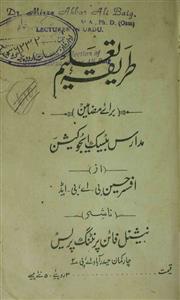 Dr. Mirza Akbar Ali Baig,
M.A., Ph. D. (Osm)
LECTURER IN URDU.
طریقۂ تعلیم
(برائے مضامین)
مدارس بیسک ایجوکیشن
از
افسر حسین بی۔اے، بی۔ایڈ
ناشر
نیشنل فائن پرنٹنگ پریس
چارکمان حیدرآباد۔اے۔پی
قیمت